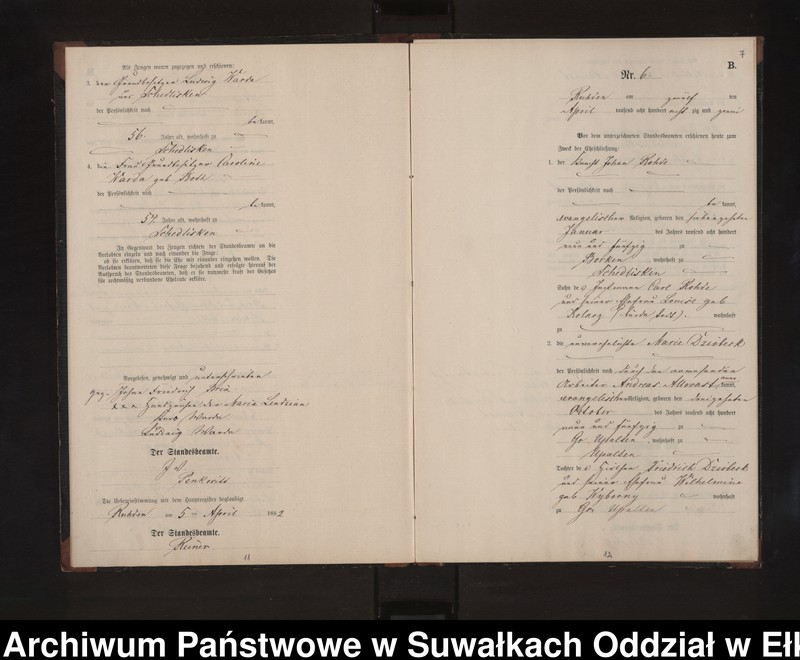 Als Zeugen waren zugezogen und erschienen:
3. der Grundbesitzer Ludwig Warda
aus Schedlisken
der Persönlichkeit nach
be kannt,
56 Jahre alt, wohnhaft zu
Schedlisken
4. die Frau Grundbesitzer Caroline
Warda geb
der Persönlichkeit nach
be kannt,
Jahre alt, wohnhaft zu
Schedlisken
In Gegenwart der Zeugen richtete der Standesbeamte an die
Verlobten einzeln und nach einander die Frage:
ob sie erklären, daß sie die Ehe mit einander eingehen wollen. Die
Verlobten beantworteten diese Frage bejahend und erfolgte hierauf der
Ausspruch des Standesbeamten, daß er sie nunmehr kraft des Gesetzes
für rechtmäßig verbundene Eheleute erkläre.
Vorgelesen, genehmigt und unterschrieben
gez. Johann Friedrich
xxx Handzeichen der Maria
Warda
Ludwig Warda
Der Standesbeamte.
Die Uebereinstimmung mit dem Hauptregister beglaubigt
am 5 ten April 1882
Der Standesbeamte.
11
7
B.
Nr. 6.
am zwölf ten
April tausend acht hundert acht zig und zwei
Vor dem unterzeichneten Standesbeamten erschienen heute zum
Zweck der Eheschließung:
1. der Knecht Johann Rohde
der Persönlichkeit nach
be kannt,
evangelischer Religion, geboren den
Januar des Jahres tausend acht hundert
neun und fünfzig zu
, wohnhaft zu
Schedlisken
Sohn des Carl Rohde
und seiner Ehefrau Louise geb
wohnhaft
zu
2. die unverehelichte Marie Dziobeck
der Persönlichkeit nach durch den anwesenden
Arbeiter Andreas kannt,
evangelischer Religion, geboren den dreizehnten
October des Jahres tausend acht hundert
neun und fünfzig zu
Gr Upalten, wohnhaft zu
Upalten
Tochter des Friedrich Dziobeck
und seiner Ehefrau Wilhelmine
geb Wyborny wohnhaft
zu Gr Upalten
12
Archiwum Państwowe w Suwałkach Oddział w Ełk